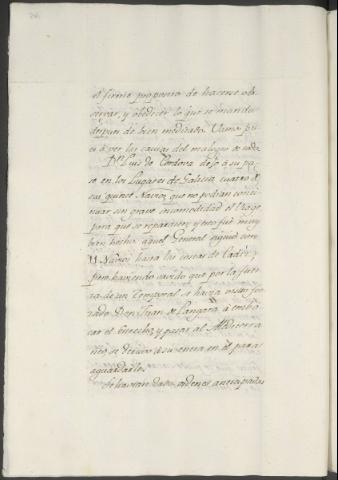 el firme proposito de hacerse ob-
servar, y obedecer lo que se manda
despues de bien meditado. Vamos pu-
es à ver las causas del malogro de todo.
Dn. Luis de Cordova dejó à su pa-
so en los Lugares de Galicia cuatro de
sus quince Navios que no podian conti-
nuar sin grave incomodidad el Viage
para que se reparasen, y esto fué muy
bien hecho: aquel General siguió con
11 Navios hasta las costas de Cadiz y
pero haviendo savido que por la fuer-
za de un temporal se havia visto for-
zado Don Juan de Langara à embo-
car el Estrecho, y pasar al Mediterra-
neo se detuvo à su entrada en él para
aguardarle.
Se havian dado ordenes anticipadas